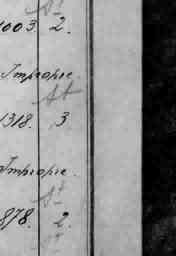 1003. 2.
Impropre.
1318. 3
Impropre.
878. 2.